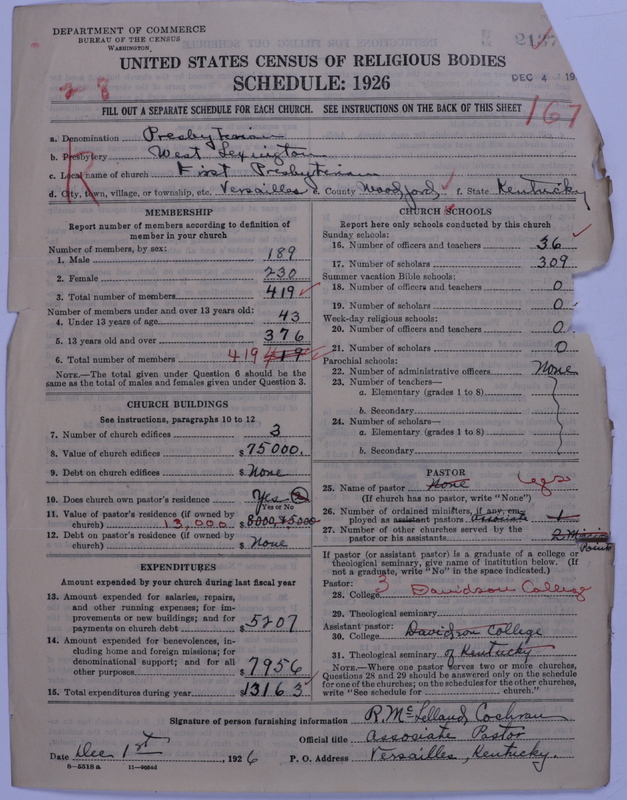 DEPARTMENT OF COMMERCE
BUREAU OF THE CENSUS
WASHINGTON
UNITED STATES CENSUS OF RELIGIOUS BODIES
SCHEDULE: 1926
DEC 4 19
28
FILL OUT A SEPARATE SCHEDULE FOR EACH CHURCH. SEE INSTRUCTIONS ON THE BACK OF THIS SHEET
167
R
a. Denomination Presbyterian
b. Presbytery West Lexington
c. Local name of church First Presbyterian
d. City, town, village, or township, etc. Versailles e. County Woodford f. State Kentucky
MEMBERSHIP
Report number of members according to definition of
member in your church
Number of members, by sex:
1. Male 189
2. Female 230
3. Total number of members 419
Number of members under and over 13 years old:
4. Under 13 years of age 43
5. 13 years old and over 376
6. Total number of members 419 419
NOTE.—The total given under Question 6 should be
same as the total of males and females given under Question 3.
CHURCH BUILDINGS
See instructions, paragraphs 10 to 12
7. Number of church edifices 3
8. Value of church edifices $75000.
9. Debt on church edifices $ None
10. Does church own pastor's residence Yes 2
Yes or No
11. Value of pastor's residence (if owned by
church) 13,000 $8000, $5000
12. Debt on pastor's residence (if owned by
church) $ None
EXPENDITURES
Amount expended by your church during last fiscal year
13. Amount expended for salaries, repairs,
and other running expenses; for im-
provements or new buildings; and for
payments on church debt $5207
14. Amount expended for benevolences, in-
cluding home and foreign missions; for
denominational support; and for all
other purposes $7956
15. Total expenditures during year $13163
CHURCH SCHOOLS
Report here only schools conducted by this church
Sunday schools:
16. Number of officers and teachers 36
17. Number of scholars 309
Summer vacation Bible schools:
18. Number of officers and teachers 0
19. Number of scholars 0
Week-day religious schools:
20. Number of officers and teachers 0
21. Number of scholars 0
Parochial schools:
22. Number of administrative officers None
23. Number of teachers—
a. Elementary (grades 1 to 8)
b. Secondary
24. Number of scholars—
a. Elementary (grades 1 to 8)
b. Secondary
PASTOR
25. Name of pastor None
(If church has no pastor, write "None")
26. Number of ordained ministers, if any, em-
ployed as assistant pastors Associate 1
27. Number of other churches served by the
pastor or his assistants 2 Mission
Points
If pastor (or assistant pastor) is a graduate of a college or
theological seminary, give name of institution below. (If
not a graduate, write "No" in the space indicated.)
Pastor:
28. College 3 Davidson College
29. Theological seminary
Assistant pastor:
30. College Davidson College
31. Theological seminary of Kentucky
NOTE.—Where one pastor serves two or more churches,
Questions 28 and 29 should be answered only on the schedule
for one of the churches; on the schedules for the other churches,
write "See schedule for church."
Signature of person furnishing information R. McLelland Cochran
Official title Associate Pastor
Date Dec 1st, 1926 P. O. Address Versailles, Kentucky.
8—5518 a